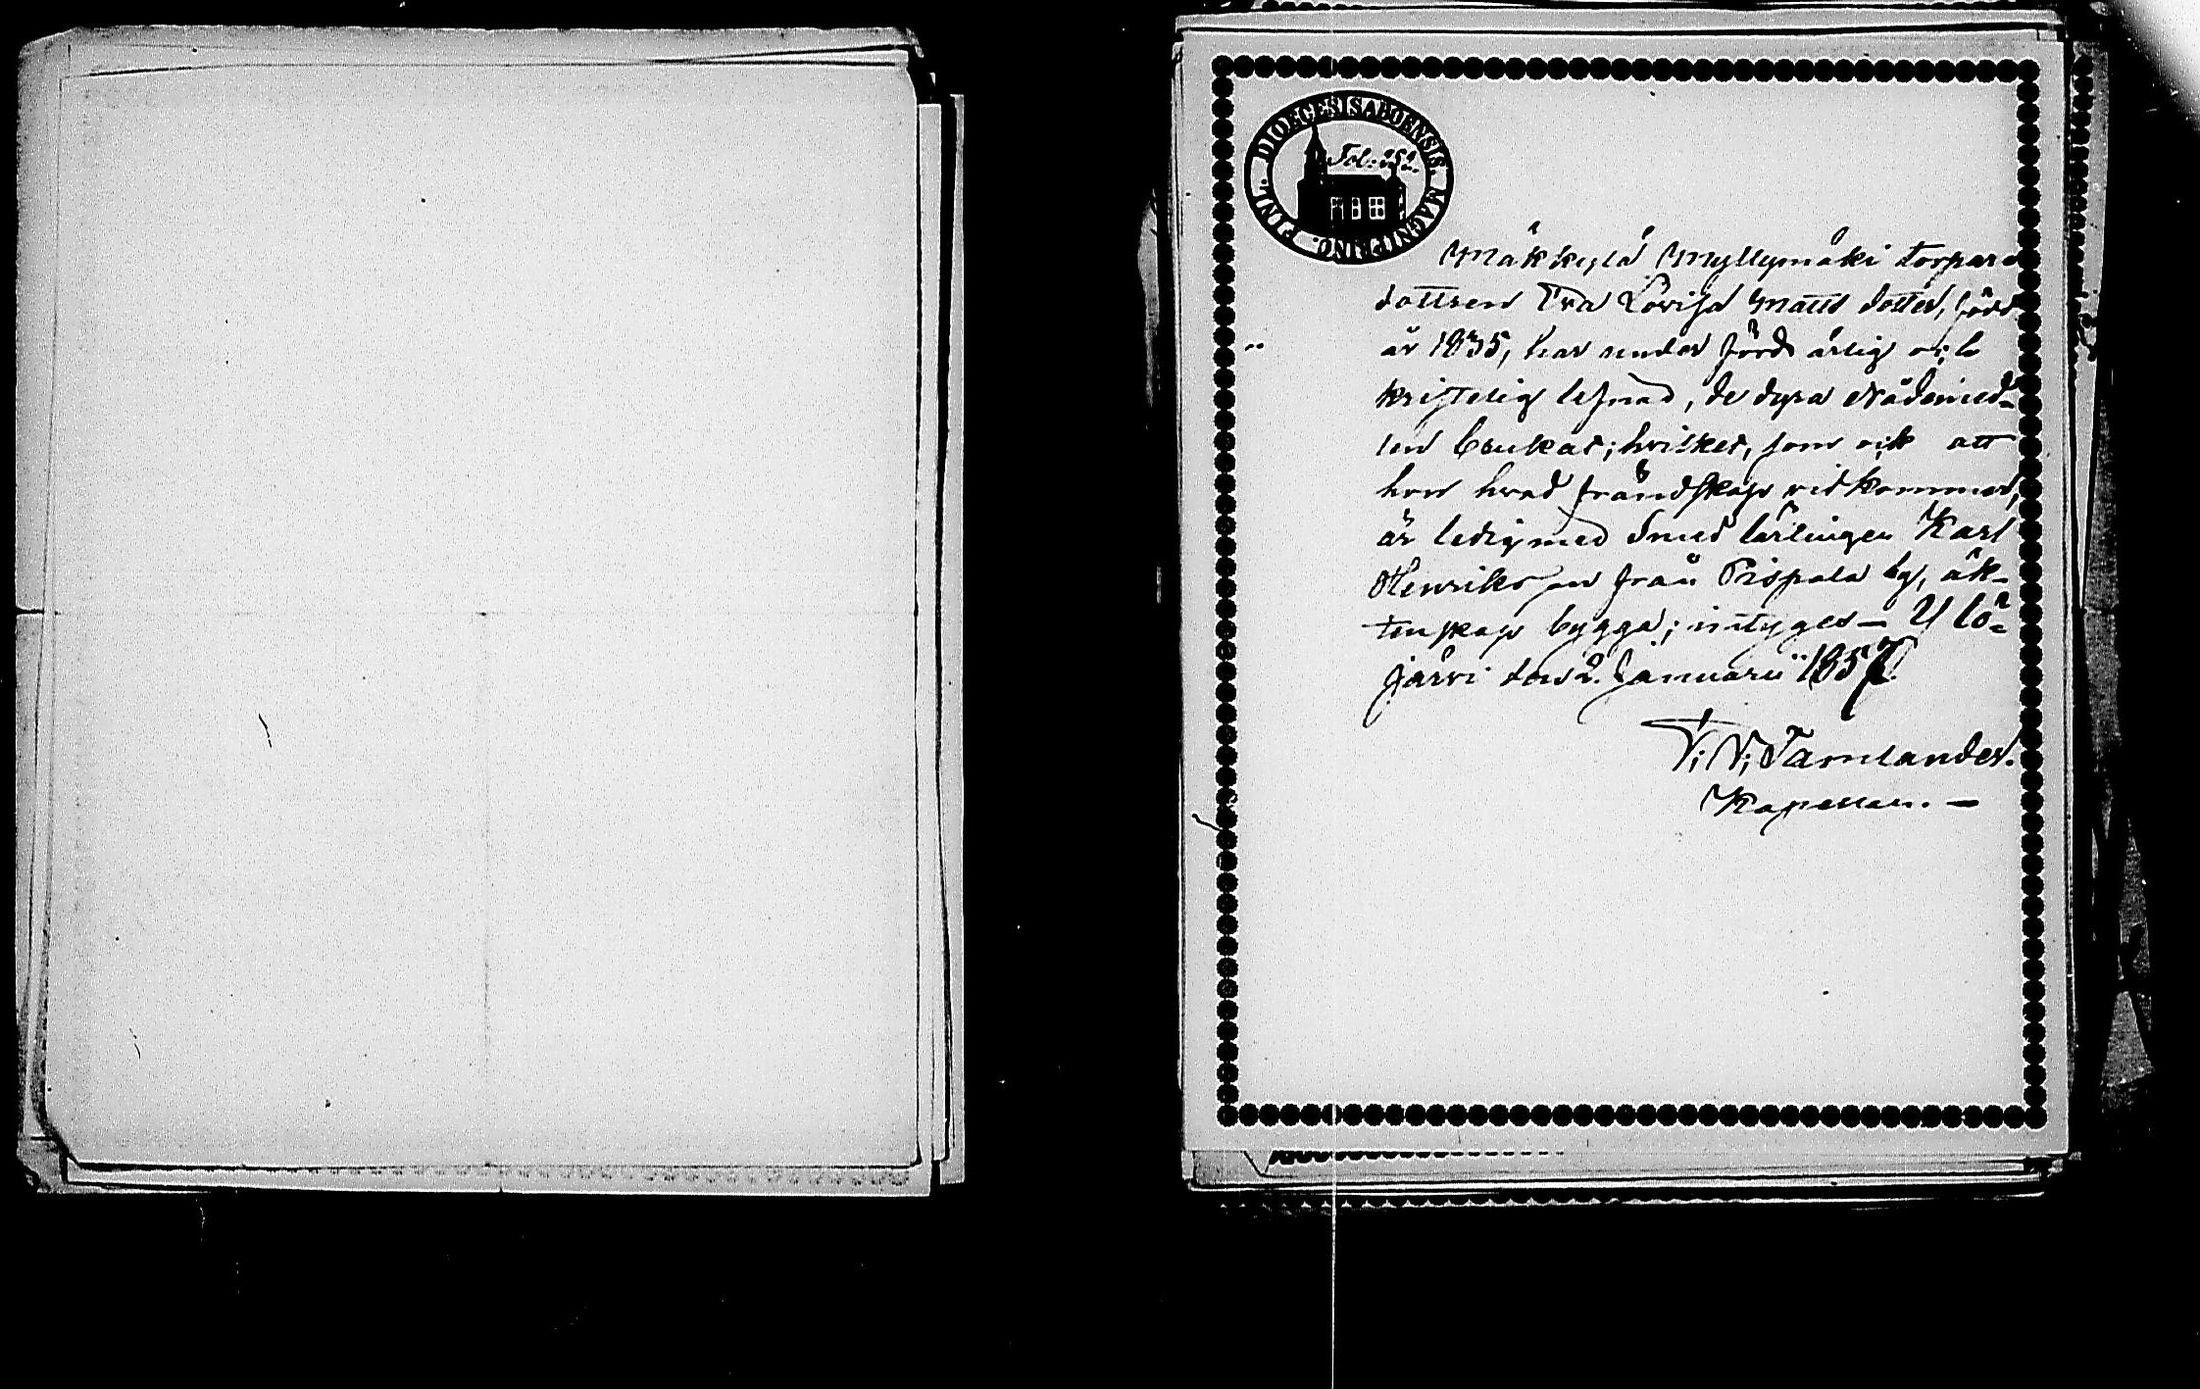 DIOECESIS ABOENSIS. MAGNI PRINC. FINL.
Fol: 252.
Mäkkylä Myllymäki torpare
dottren Eva Lovisa Matts dotter, född
år 1835, har under förd ärlig och
kristelig lefnad, de dyra Nådemed-
len brukat; hvilket, som ock att
hon hvad frändskap vidkommer,
är ledig med Smed lärlingen Karl
Henriksson från Pispala by, äk-
tenskap bygga; intyges – Ylö-
järvi den 2. Januarii 1857.
Tamlander.
Kapellan. –